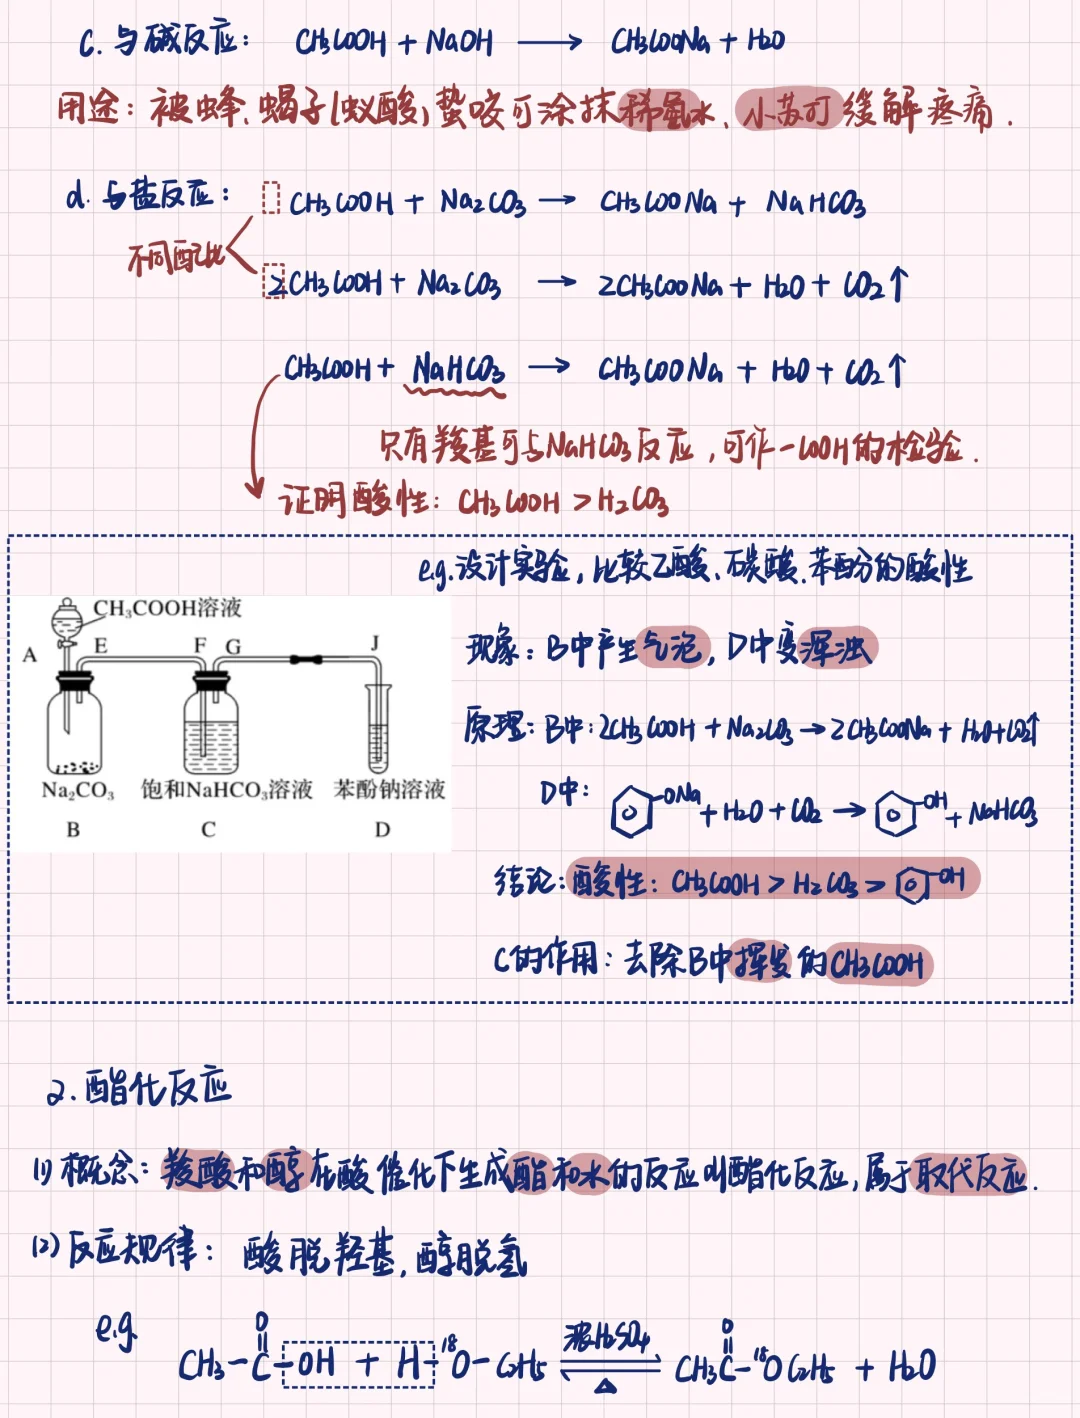 c. 与碱反应: CH3COOH + NaOH ⟶ CH3COONa + H2O
用途: 被蜂、蝎子(蚁酸)蛰咬可涂抹稀氨水、小苏打缓解疼痛.
d. 与盐反应: CH3COOH + Na2CO3 → CH3COONa + NaHCO3
不同配比
2CH3COOH + Na2CO3 → 2CH3COONa + H2O + CO2↑
CH3COOH + NaHCO3 → CH3COONa + H2O + CO2↑
只有羧基可与NaHCO3反应,可作-COOH的检验.
证明酸性: CH3COOH > H2CO3
e.g.设计实验,比较乙酸、碳酸、苯酚的酸性
CH3COOH溶液
A E F G J
Na2CO3 饱和NaHCO3溶液 苯酚钠溶液
B C D
现象: B中产生气泡, D中变浑浊
原理: B中: 2CH3COOH + Na2CO3 → 2CH3COONa + H2O + CO2↑
D中: -ONa + H2O + CO2 → -OH + NaHCO3
结论: 酸性: CH3COOH > H2CO3 > -OH
C的作用: 去除B中挥发的CH3COOH
2. 酯化反应
(1) 概念: 羧酸和醇在酸催化下生成酯和水的反应叫酯化反应,属于取代反应.
(2) 反应规律: 酸脱羟基,醇脱氢
e.g.
O 浓H2SO4 O
CH3-C-OH + H-18O-C2H5 ⇌ CH3C-18OC2H5 + H2O
△